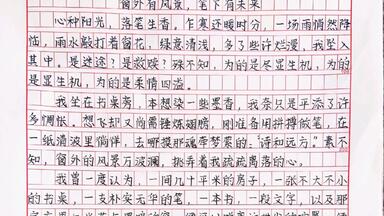 窗外有风景，笔下有未来
心种阳光，落笔生香，乍寒还暖时分，一场雨悄然降
临，雨水敲打着窗花，绿意清浅，多了些许烂漫，我坠入
其中。是迷途？是救赎？殊不知，为的是尽显生机，为的
是显生机，为的是柔情四溢。
我坐在书桌旁，本想染一些墨香，我奈只是平添了许
多惆怅。想飞却又尚需锤炼翅膀，刚准备用拼搏做笔，在
一纸清波里徜徉，去哪摸那魂牵梦萦的“诗和远方”素不
知，窗外的风景万波澜，挑弄着我疏疏离离的心。
我曾一度认为，一间几十平米的房子，一张不大不小
的书桌，一支朴安无华的笔，一本书，一段文字，以及那